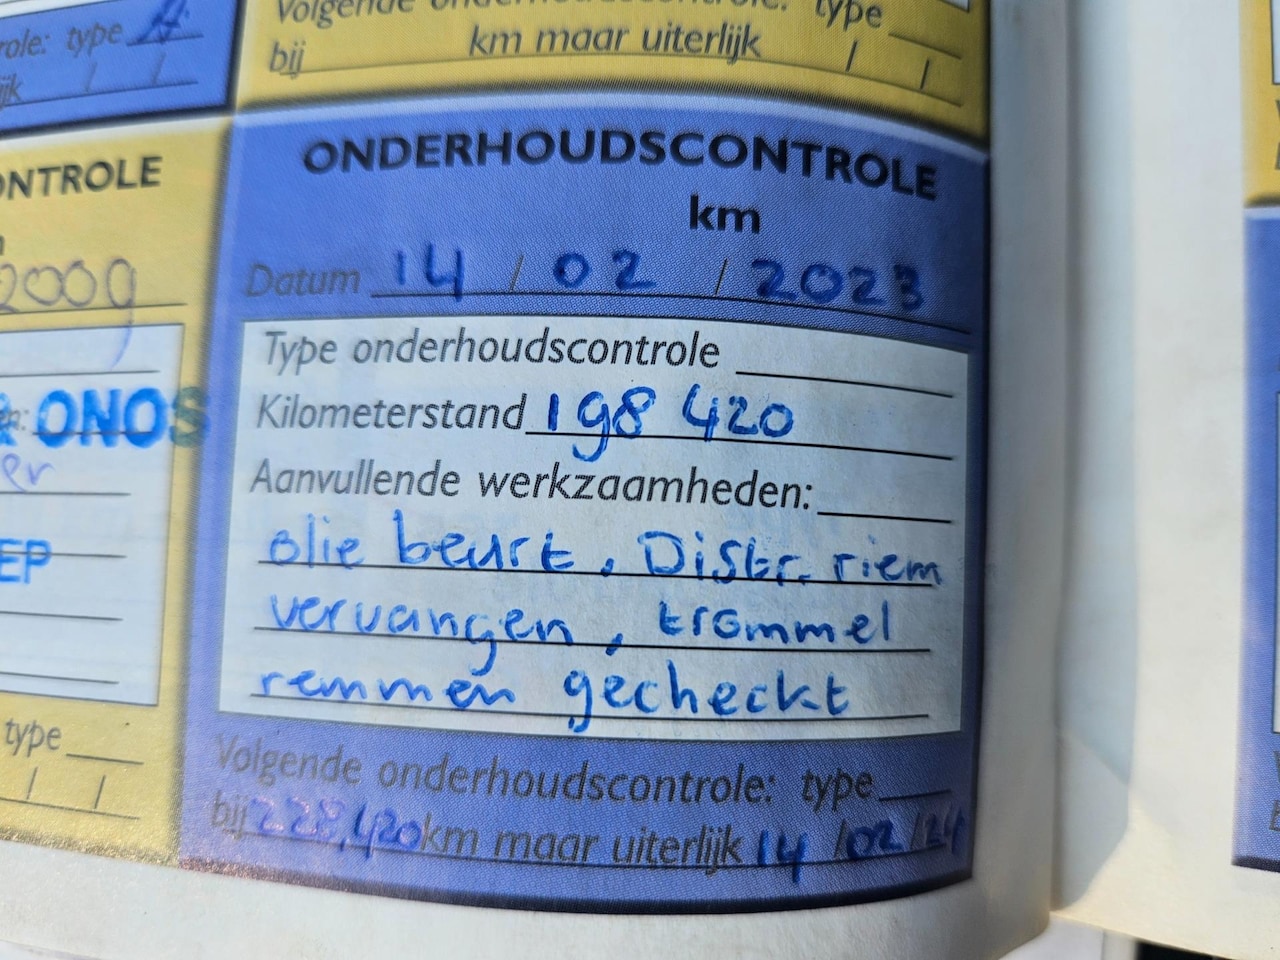 role: type A
Volgende onderhoudscontrole: type
bij km maar uiterlijk / /
ijk / /
ONTROLE
2009
ONOS
er
EP
type
/ /
ONDERHOUDSCONTROLE
km
Datum 14 / 02 / 2023
Type onderhoudscontrole
Kilometerstand 198 420
Aanvullende werkzaamheden:
olie beurt, Distr. riem
vervangen, trommel
remmen gecheckt
Volgende onderhoudscontrole: type
bij 228,420 km maar uiterlijk 14 /02 /24